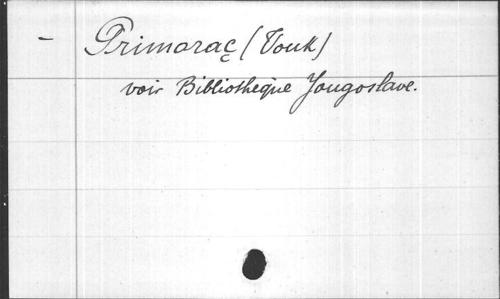 - Primorac̨ (Vouk)
voir Bibliothèque Yougoslave.